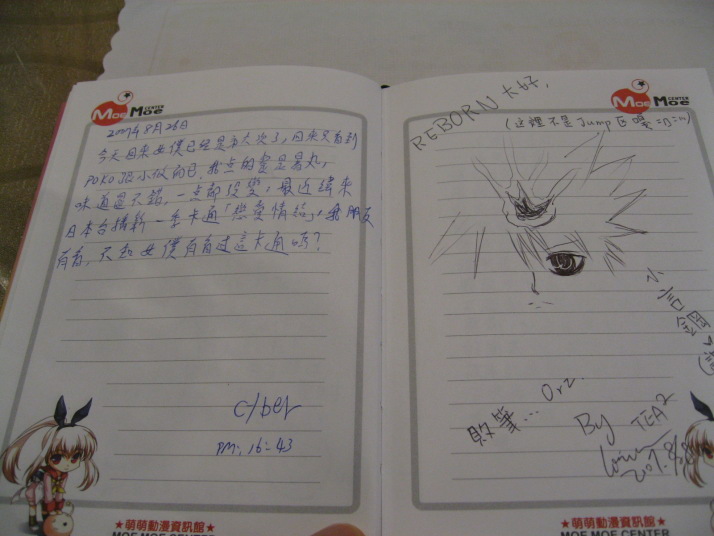 MOE MOE CENTER
2007年8月26日
今天回來女僕已經是第六次了,回來只看到
POKO跟小做的日,我点的蛋是易丸,
味道還不錯,一点都沒變,最近緯來
日本台播新一季卡通「戀愛情結」,我朋友
有看,不知女僕有看过這卡通嗎?
cyber
PM:16:43
★萌萌動漫資訊館★
MOE MOE CENTER
MOE MOE
REBORN 大好,
(這裡不是Jump區 嘎=口=")
敗筆... Orz.
By TEA²
★萌萌動漫資訊館★
MOE MOE CENTER